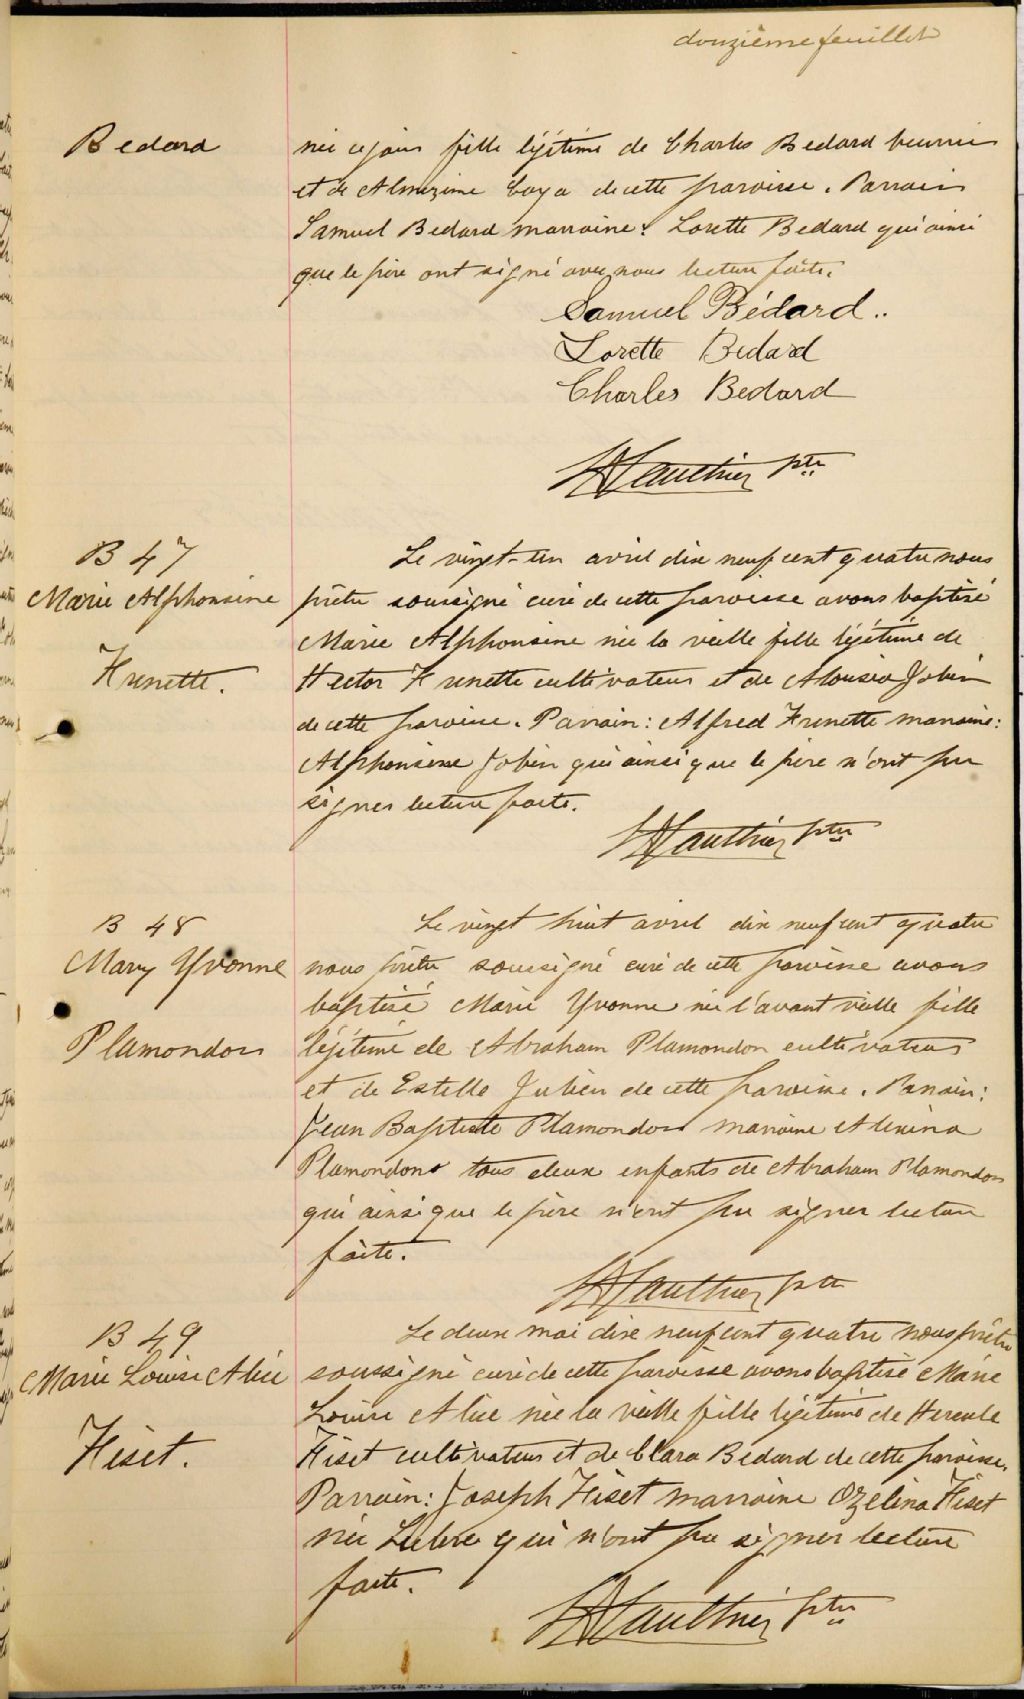 douzième feuillet
Bedard
née ce jour fille légitime de Charles Bedard beurrier
et de Almezime Coya de cette paroisse. Parrain
Samuel Bedard marraine: Lorette Bedard qui ainsi
que le père ont signé avec nous lecture faite.
Samuel Bédard..
Lorette Bedard
Charles Bedard
Gauthier ptre
B 47
Marie Alphonsine
Frenette.
Le vingt-un avril dix neuf cent quatre nous
prêtre soussigné curé de cette paroisse avons baptisé
Marie Alphonsine née la veille fille légitime de
Hector Frenette cultivateur et de Alousia Jobin
de cette paroisse. Parrain: Alfred Frenette marraine:
Alphonsine Jobin qui ainsi que le père n'ont pu
signer lecture faite.
Gauthier ptre
B 48
Mary Yvonne
Plamondon
Le vingt huit avril dix neuf cent quatre
nous prêtre soussigné curé de cette paroisse avons
baptisé Marie Yvonne née l'avant veille fille
légitime de Abraham Plamondon cultivateur
et de Estelle Julien de cette paroisse. Parrain:
Jean Baptiste Plamondon marraine Alexina
Plamondon tous deux enfants de Abraham Plamondon
qui ainsi que le père n'ont pu signer lecture
faite.
Gauthier ptre
B 49
Marie Louise Alice
Fiset.
Le deux mai dix neuf cent quatre nous prêtre
soussigné curé de cette paroisse avons baptisé Marie
Louise Alice née la veille fille légitime de Hercule
Fiset cultivateur et de Clara Bedard de cette paroisse.
Parrain: Joseph Fiset marraine Ozelina Fiset
née qui n'ont pu signer lecture
faite.
Gauthier ptre